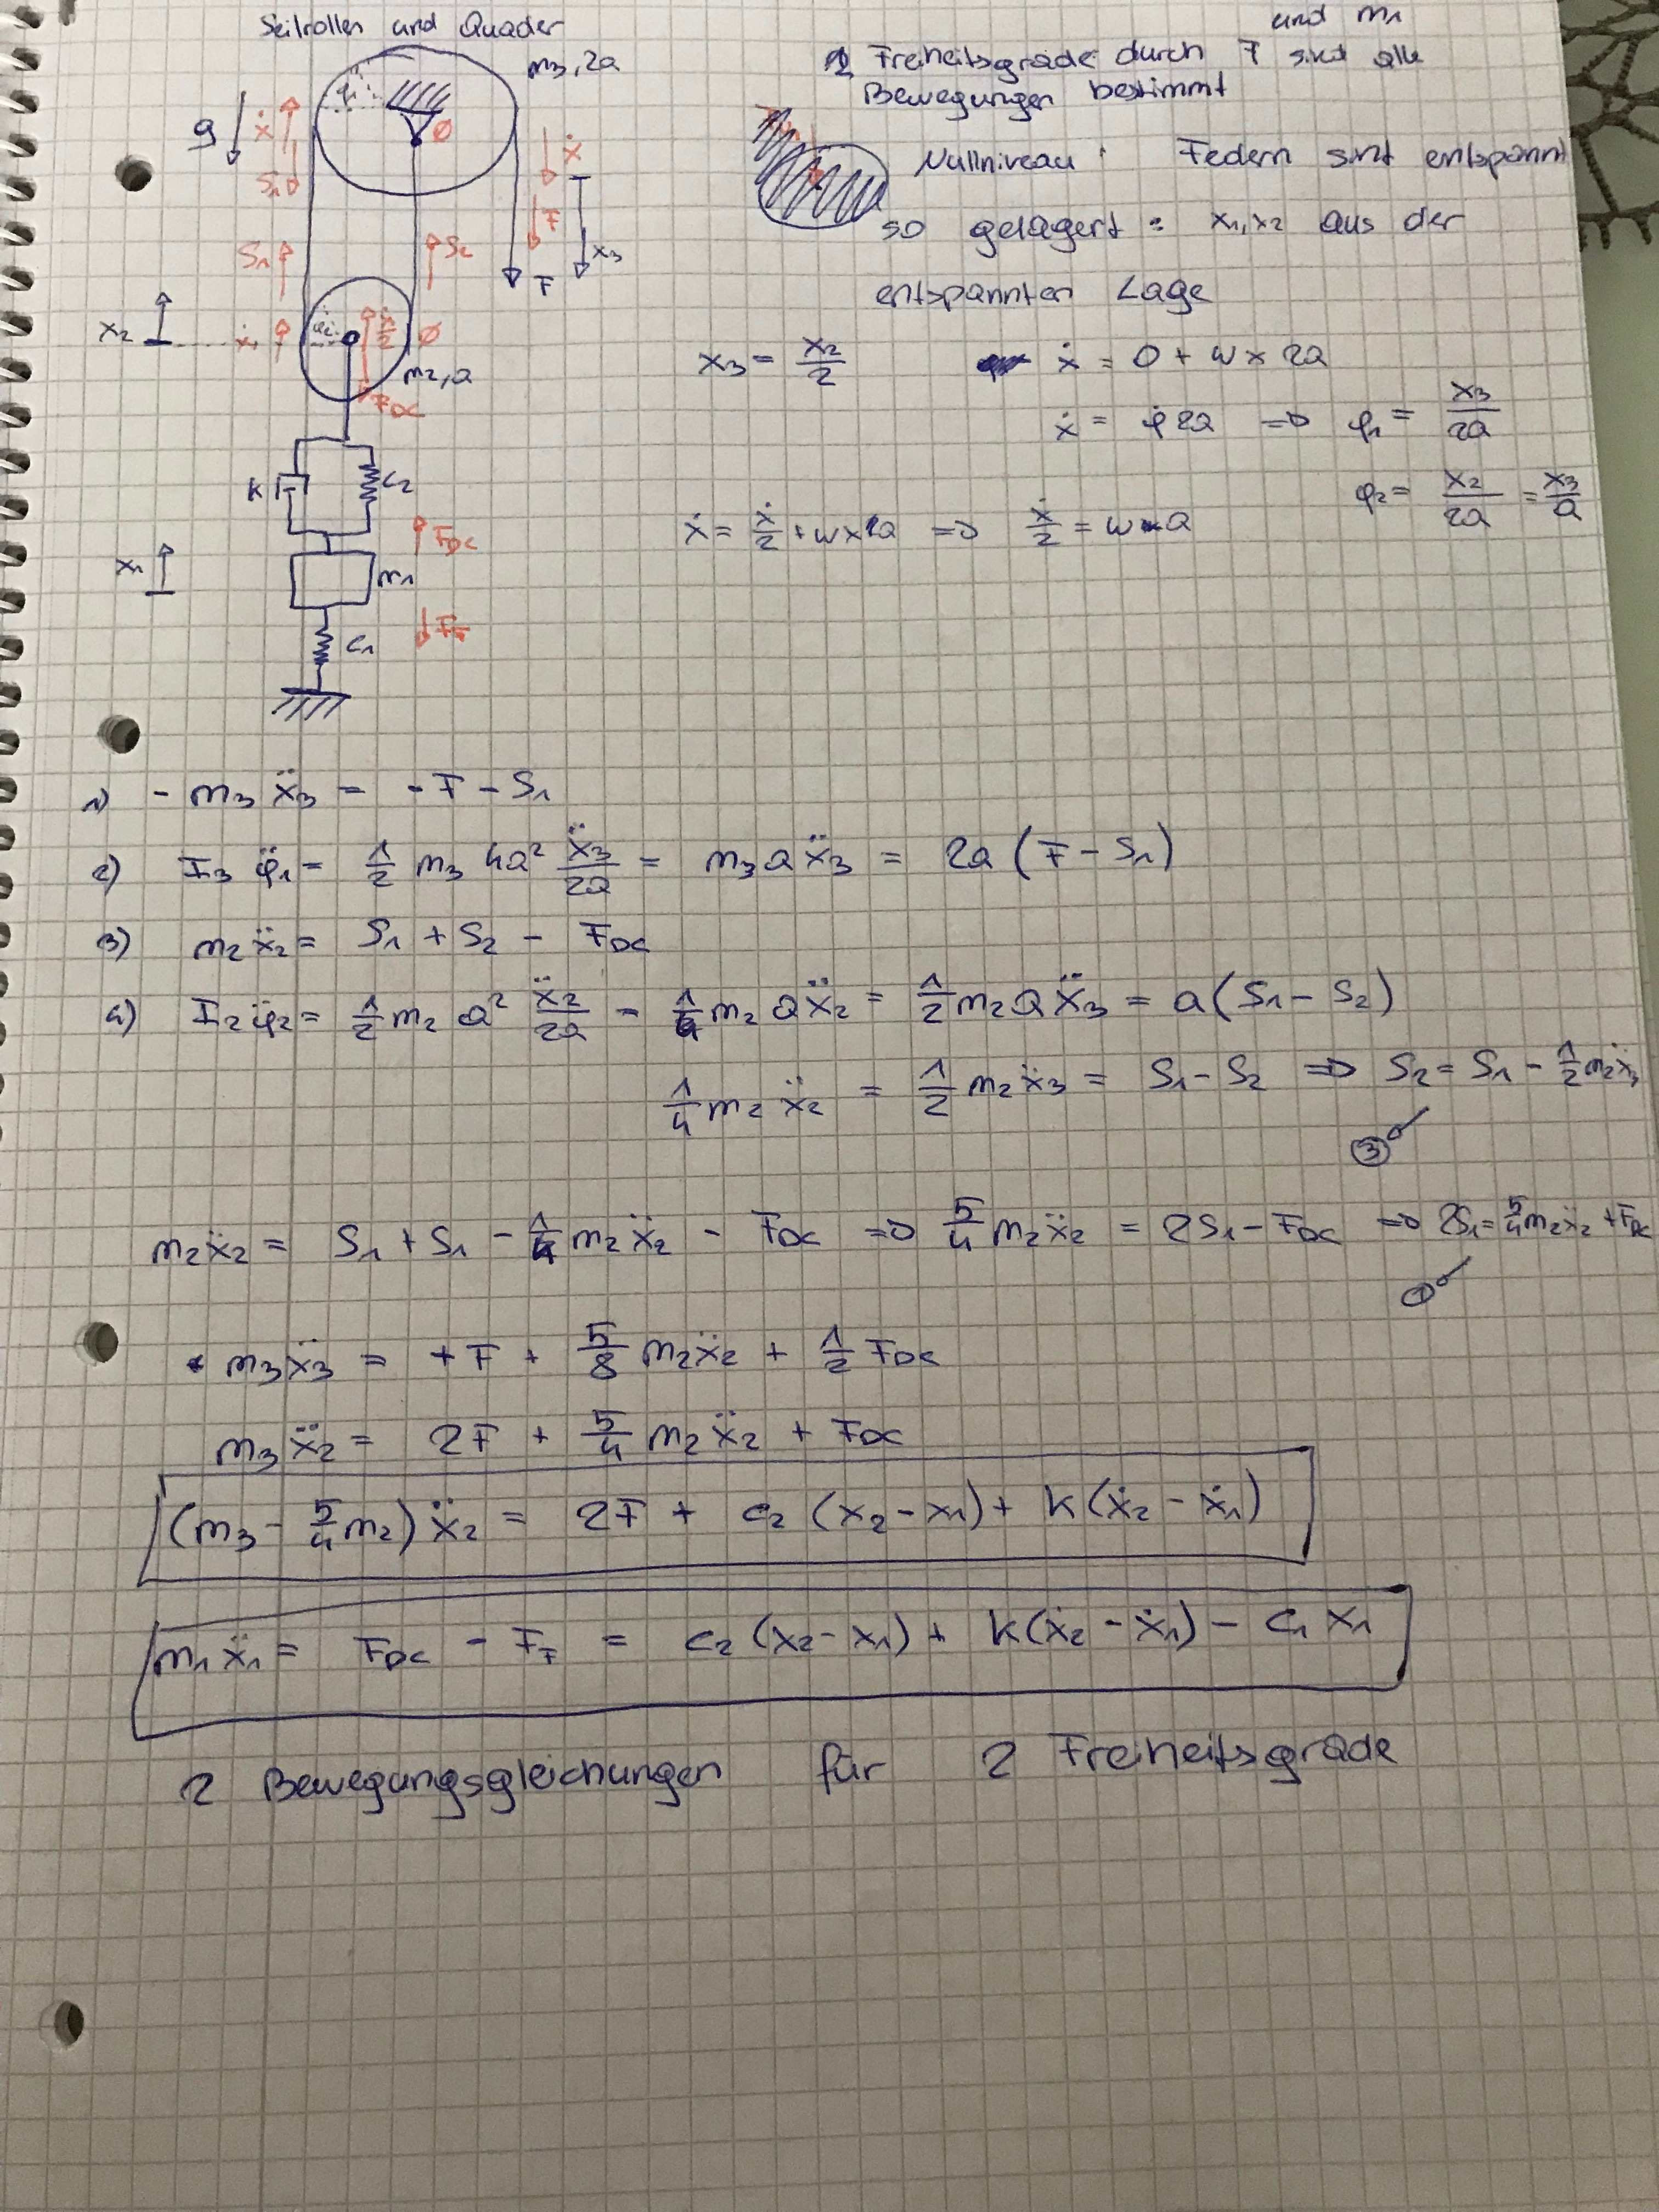 Seilrollen und Quader
und m₁
2 Freiheitsgrade durch F sind alle
Bewegungen bestimmt
Nullniveau: Federn sind entspannt
so gelagert: x₁,x₂ aus der
entspannten Lage
m₃, 2a
φ₁
g
ẋ
S₁
ø
ẋ
F
x₃
F
S₁
S₂
x₂
ẋ
φ₂
ẋ/2
ø
m₂, a
F_DC
K
C₂
F_DC
x₁
m₁
F_F
C₁
x₃ = x₂/2
ẋ = 0 + ω × 2a
ẋ = φ̇ 2a => φ₁ = x₃/2a
φ₂ = x₂/2a = x₃/a
ẋ = ẋ/2 + ω × a => ẋ/2 = ω a
1) - m₃ ẍ₃ = - F - S₁
2) I₃ φ̈₁ = 1/2 m₃ 4a² ẍ₃/2a = m₃ a ẍ₃ = 2a (F - S₁)
3) m₂ ẍ₂ = S₁ + S₂ - F_DC
4) I₂ φ̈₂ = 1/2 m₂ a² ẍ₂/2a = 1/4 m₂ a ẍ₂ = 1/2 m₂ a ẍ₃ = a (S₁ - S₂)
1/4 m₂ ẍ₂ = 1/2 m₂ ẍ₃ = S₁ - S₂ => S₂ = S₁ - 1/2 m₂ ẍ₃
③
m₂ ẍ₂ = S₁ + S₁ - 1/4 m₂ ẍ₂ - F_DC => 5/4 m₂ ẍ₂ = 2S₁ - F_DC => 2S₁ = 5/4 m₂ ẍ₂ + F_DC
①
m₃ ẍ₃ = + F + 5/8 m₂ ẍ₂ + 1/2 F_DC
m₃ ẍ₂ = 2F + 5/4 m₂ ẍ₂ + F_DC
(m₃ - 5/4 m₂) ẍ₂ = 2F + c₂ (x₂ - x₁) + k (ẋ₂ - ẋ₁)
m₁ ẍ₁ = F_DC - F_F = c₂ (x₂ - x₁) + k (ẋ₂ - ẋ₁) - c₁ x₁
2 Bewegungsgleichungen für 2 Freiheitsgrade